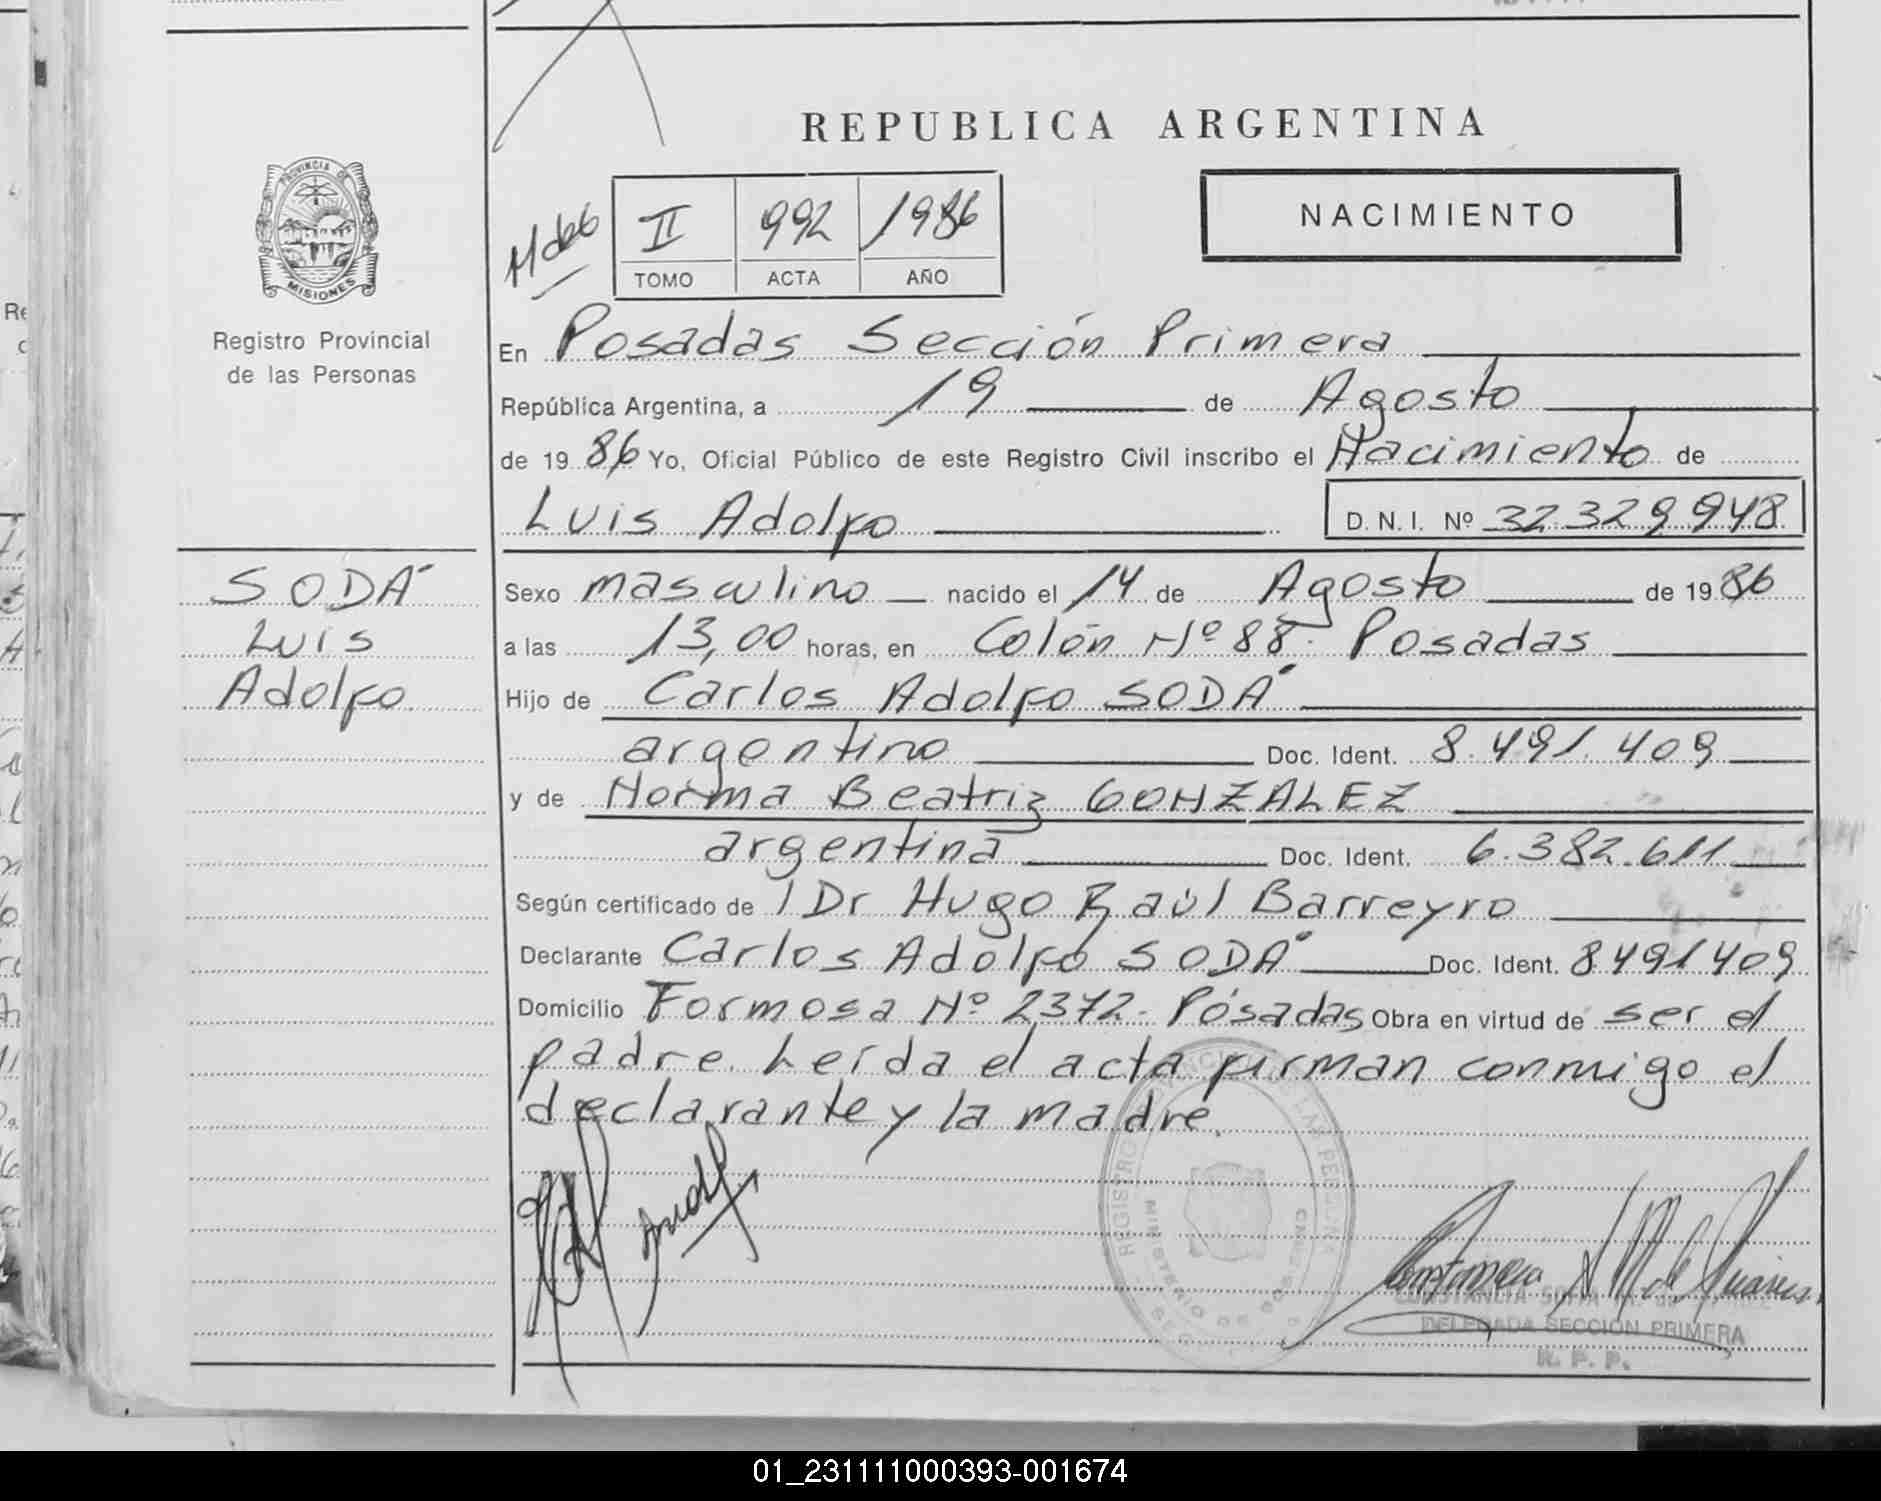 REPUBLICA ARGENTINA
PROVINCIA DE
MISIONES
Registro Provincial
de las Personas
NACIMIENTO
II 992 1986
TOMO ACTA AÑO
En Posadas Sección Primera
República Argentina, a 19 de Agosto
de 1986 Yo, Oficial Público de este Registro Civil inscribo el Nacimiento de
Luis Adolfo D.N.I. Nº 32.329.948
SODÁ
Luis
Adolfo
Sexo masculino nacido el 14 de Agosto de 1986
a las 13,00 horas, en Colón Nº 88. Posadas
Hijo de Carlos Adolfo SODÁ
argentino Doc. Ident. 8.491.409
y de Norma Beatriz GONZALEZ
argentina Doc. Ident. 6.382.611
Según certificado de l Dr Hugo Raúl Barreyro
Declarante Carlos Adolfo SODÁ Doc. Ident. 8491409
Domicilio Formosa Nº 2372. Posadas Obra en virtud de ser el
padre. Leída el acta firman conmigo el
declarante y la madre.
DELEGADA SECCION PRIMERA
R. P. P.
01_231111000393-001674